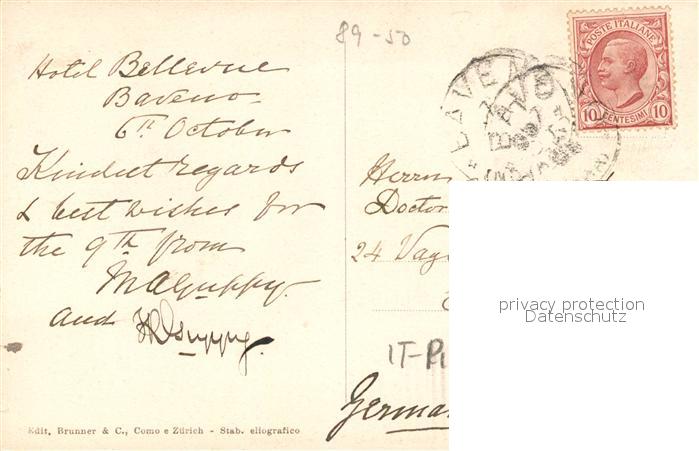 89-50
Hotel Bellevue
Baveno
6th October
Kindest regards
& best wishes for
the 9th from
MAGuppy.
and HBGuppy.
POSTE ITALIANE
10 CENTESIMI 10
LAVENO
BAVENO
Herrn
Doctor
24
IT-PI
German
privacy protection
Datenschutz
Edit, Brunner & C., Como e Zürich - Stab. eliografico